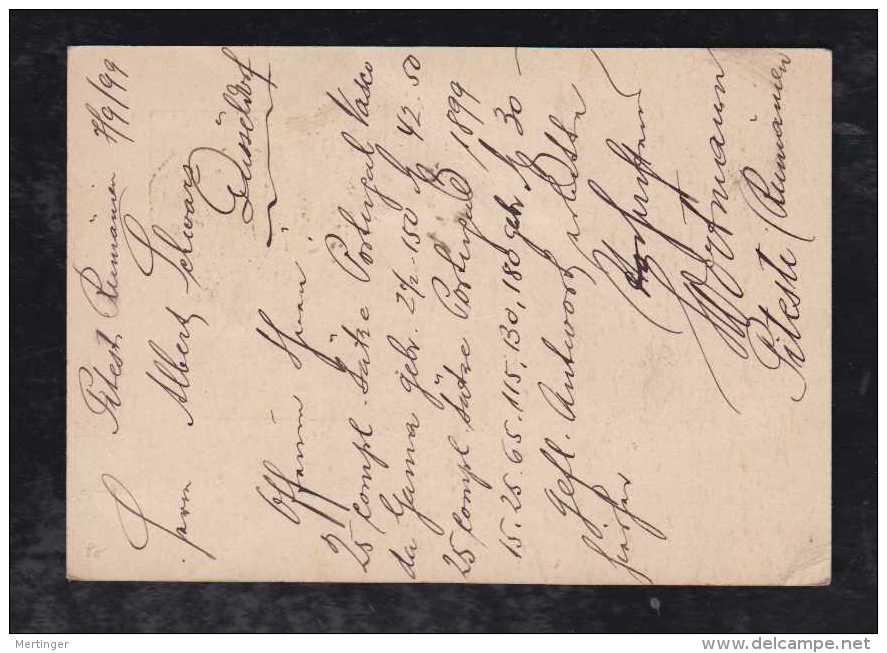 Pitesti Rumänien 7/9/99
Herrn
Albert Schwarz
Düsseldorf
Offerire Ihnen:
25 compl. Sätze Portugal Vasco
da Gama gebr. 2½-150 M 42.50
25 compl Sätze Portugal 1899
15. 25. 65. 115, 130, 180 gebr. M 30 –
Gefl. Antwort erbitte
hierher
Wortmann
Pitesti (Rumänien
Mertinger
www.delcampe.net